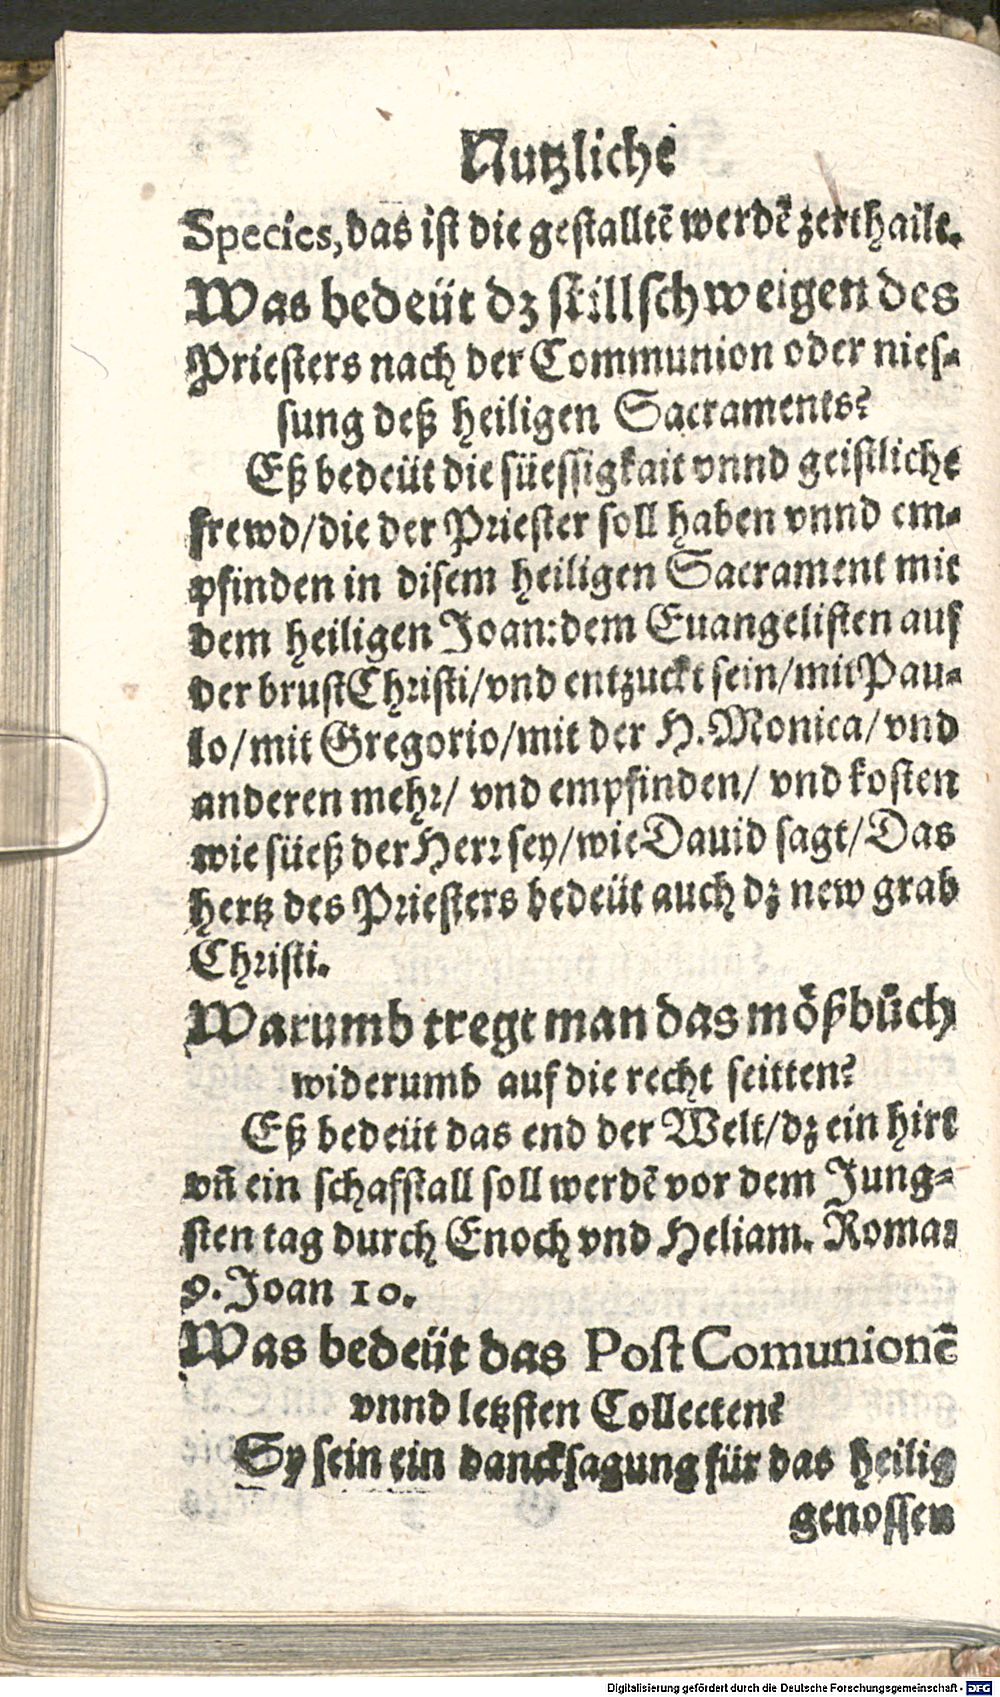 Nutzliche
Species, das ist die gestalltē werdē zerthailt.
Was bedeüt dz stillschweigen des
Priesters nach der Communion oder nies-
sung deß heiligen Sacraments?
Eß bedeüt die süessigkait vnnd geistliche
frewd/die der Priester soll haben vnnd em-
pfinden in disem heiligen Sacrament mit
dem heiligen Joan: dem Euangelisten auf
der brust Christi/vnd entzuckt sein/mit Pau-
lo/mit Gregorio/mit der H. Monica/vnd
anderen mehr/ vnd empfinden/ vnd kosten
wie süeß der Herr sey/wie Dauid sagt/Das
hertz des Priesters bedeüt auch dz new grab
Christi.
Warumb tregt man das mößbůch
widerumb auf die recht seitten?
Eß bedeüt das end der Welt/dz ein hirt
vñ ein schafstall soll werdē vor dem Jung-
sten tag durch Enoch vnd Heliam. Roma:
9. Joan 10.
Was bedeüt das Post Comunionē
vnnd letzsten Collecten?
Sy sein ein dancksagung für das heilig
genossen
Digitalisierung gefördert durch die Deutsche Forschungsgemeinschaft - DFG